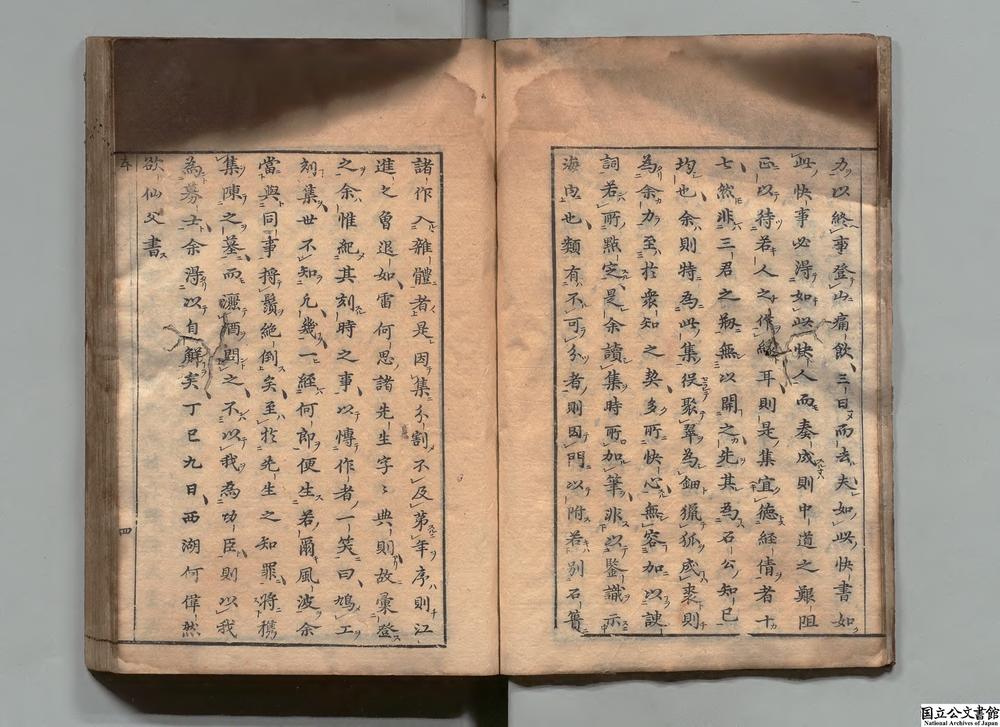 力以終事登山痛飲三日而去夫如此快書如
此快事必得如此快人而奏成則中道之艱阻
正以待若人之作緣耳則是集宜德經倩者十
七然非三君之剏無以開之先其為石公知已
均也余則特為此集役聚翠為鈿獵狐成裘則
為余力至於衆知之契多所快心無容加以諛
詞若所點定是余讀集時所加筆非以鑒識示
海内也類有不可分者則因門以附若別石簣
諸作入雜體者是因集分割不及第年序則江
進之曾退如雷何思諸先生字々典則故彙登
之余惟紀其刻時之事以慱作者一笑曰鳩工
刻集世不知凡幾一經何郎便生若爾風波余
當與同事捋鬚絶倒矣至於先生之知罪將携
集陳之墓而灑酒問之不以我為功臣則以我
為募士余得以自鮮矣丁巳九日西湖何偉然
欲仙父書
序
四
国立公文書館
National Archives of Japan